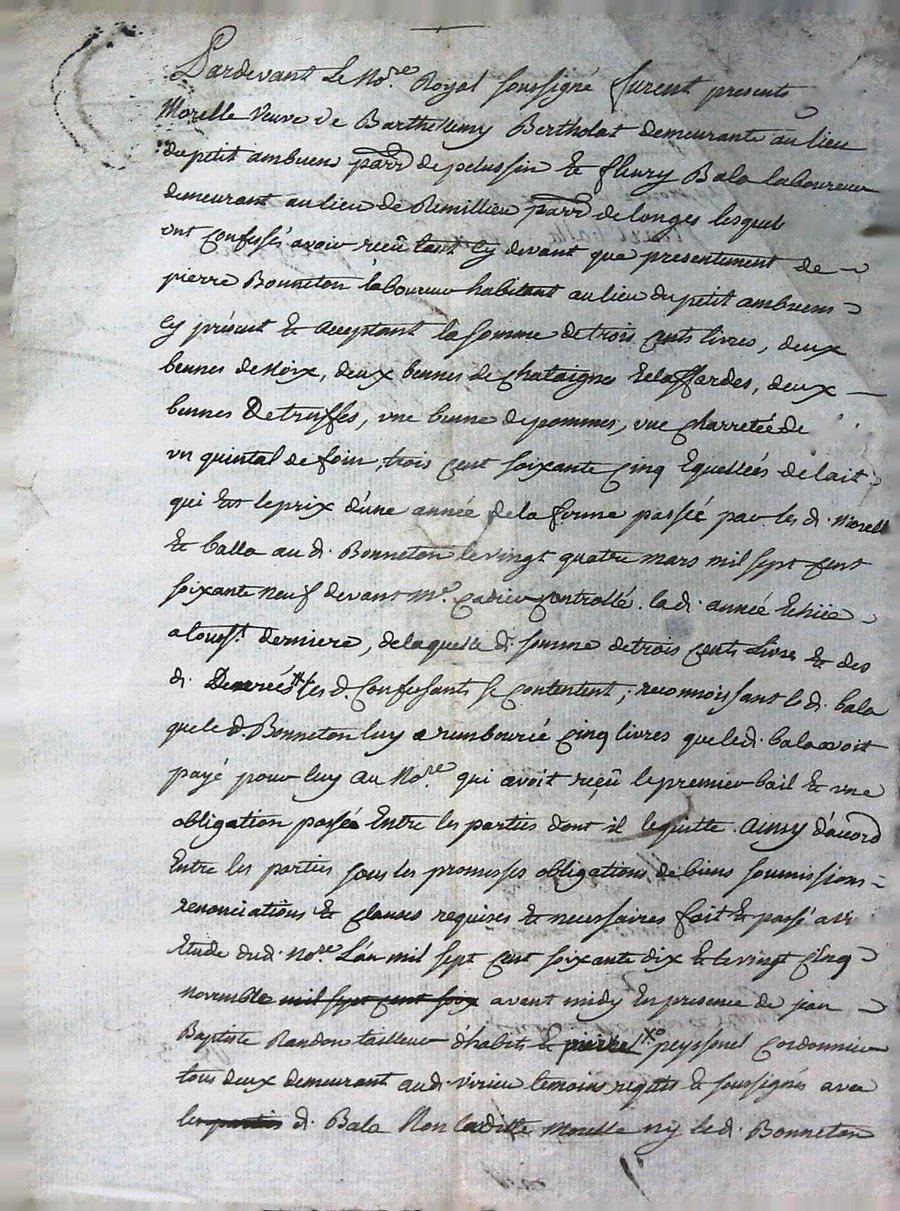 Pardevant Le No.re Royal soussigné furent presents
Morelle veuve de Barthellemy Bertholat demeurante au lieu
du petit ambuens parr. de pelussin & fleury Bala laboureur
demeurant au lieu de Remillieu parr. de longes lesquel
ont confessés avoir reçû tant cy devant que presentement de
pierre Bonneton laboureur habitant au lieu du petit ambuens
cy présent & acceptant la somme de trois cents livres, deux
bennes de noix, deux bennes de chataignes deux
bennes de truffes, une benne de pommes, une charretée de
un quintal de foin, trois cent soixante cinq equellées de lait
qui est le prix d'une année de la ferme passée par les d. Morell
& balla au d. Bonneton le vingt quatre mars mil sept cent
soixante neuf devant m.e controllé. la d. année echüe
a touss.t derniere, de laquelle d. somme de trois cents Livres & des
d. Denrées les d. confessants se contentent, reconnoissant le d. bala
que le d. Bonneton luy a rembourcé cinq livres que le d. bala avoit
payé pour luy au No.re qui avoit reçû le premier bail & une
obligation passée Entre les parties dont il le quitte. ainsy d'acord
Entre les parties sous les promesses obligations de biens soumissions
renonciations & clauses requises & necessaires fait & passé a vi
Etude dud. no.re L'an mil sept cent soixante dix & le vingt cinq
novembre mil sept cent soix avant midy En presence de jean
Baptiste Randon tailleur d'habits & pierre peyssonel cordonnier
tous deux demeurant aud. virieu temoins requis & soussignés avec
les parties d. Bala Non laditte Morelle ny le d. Bonneton